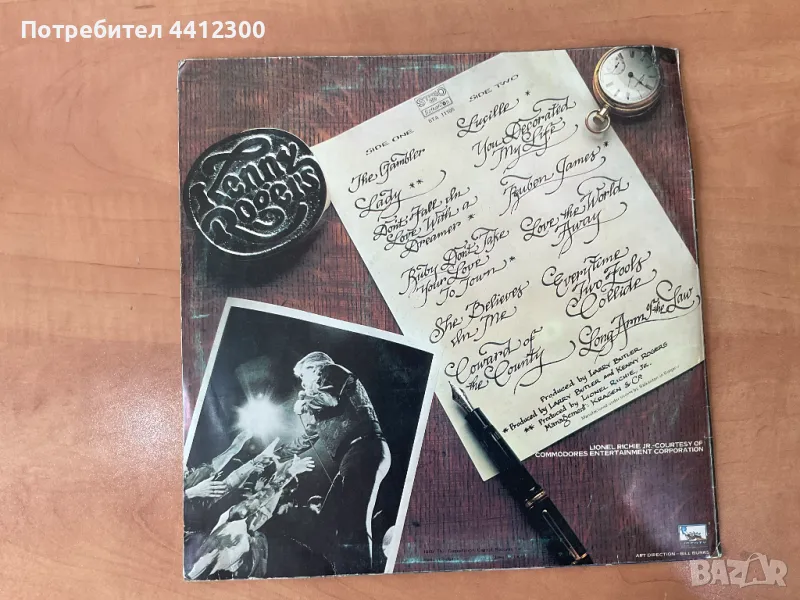 Потребител 4412300
Kenny
Rogers
STEREO
Balkanton
BTA 11105
SIDE ONE
The Gambler
Lady **
Don't Fall In
Love With a
Dreamer *
Ruby Don't Take
Your Love
To Town *
She Believes
In Me
Coward of
the County
SIDE TWO
Lucille *
You Decorated
My Life
Reuben James *
Love the World
Away
Everytime
Two Fools
Collide
Long Arm of the Law
Produced by Larry Butler
* Produced by Larry Butler and Kenny Rogers
** Produced by Lionel Richie Jr.
Management: Kragen & Co.
LIONEL RICHIE JR.-COURTESY OF
COMMODORES ENTERTAINMENT CORPORATION
ART DIRECTION - BILL BURKS
BAZAR